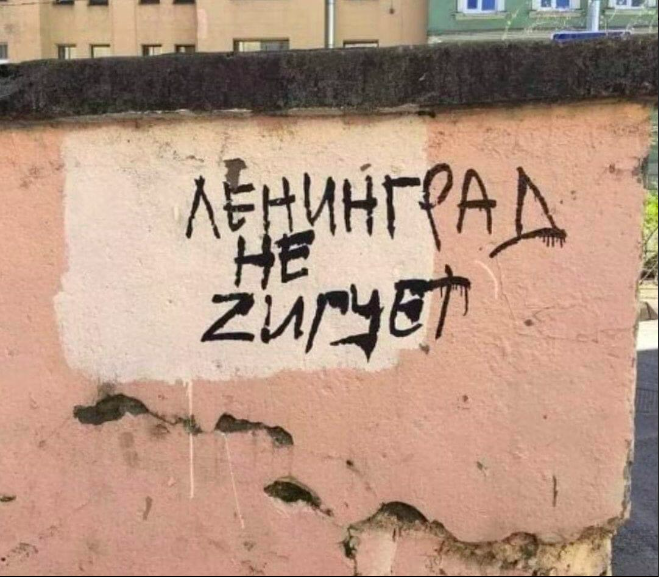 ЛЕНИНГРАД
НЕ
ZИГУЕТ